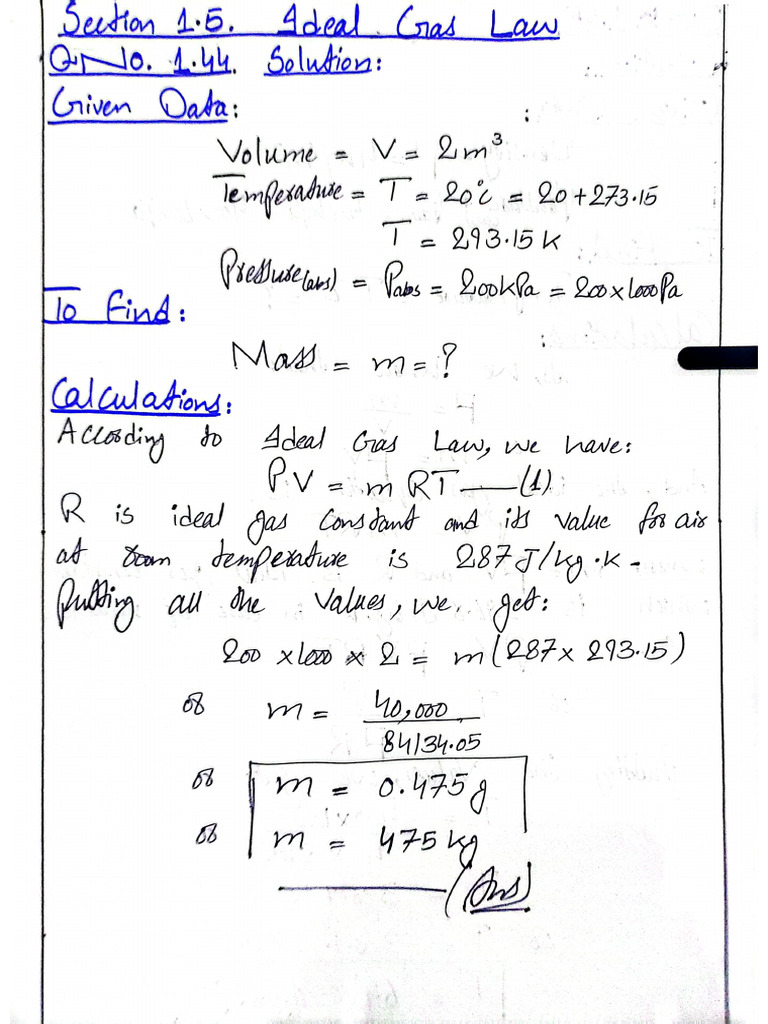 Section 1.5. Ideal Gas Law
Q No. 1.44. Solution:
Given Data:
Volume = V = 2m³
Temperature = T = 20°C = 20 + 273.15
T = 293.15 K
Pressure(abs) = Pabs = 200kPa = 200 x 1000Pa
To Find:
Mass = m = ?
Calculations:
According to Ideal Gas Law, we have:
PV = m RT —— (1)
R is ideal gas constant and its value for air
at room temperature is 287 J/kg.K.
Putting all the values, we get:
200 x 1000 x 2 = m(287 x 293.15)
or m = 40,000
84134.05
or m = 0.475g
or m = 475 kg
(Ans)